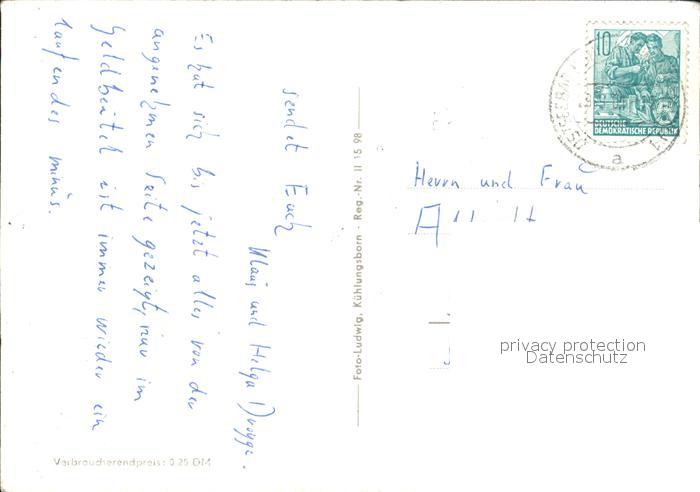 sendet Euch
Klaus und Helga
Es hat sich bis jetzt alles von der
angenehmen Seite gezeigt, nur im
Geldbeutel ist immer wieder ein
laufendes minus.
Verbraucherendpreis: 0.25 DM
Foto-Ludwig, Kühlungsborn - Reg.-Nr. II 15 98
10
DEUTSCHE
DEMOKRATISCHE REPUBLIK
a
Herrn und Frau
privacy protection
Datenschutz